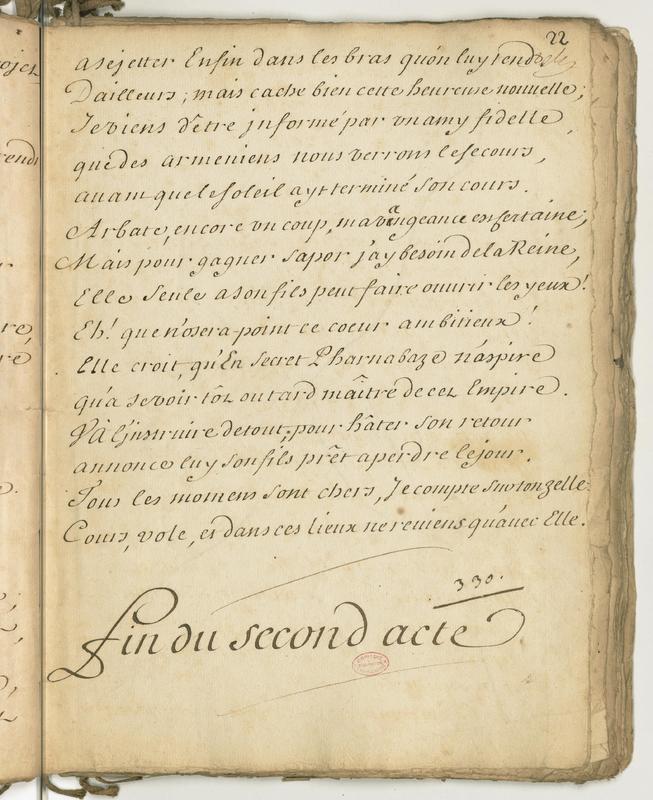 22
a se jetter Enfin dans les bras qu'on luy tend
Dailleurs; mais cache bien cette heureuse nouvelle;
Je viens d'être jnformé par un amy fidelle,
que des armeniens nous verrons le secours,
avant que le soleil ayt terminé son cours.
Arbate, encore un coup, ma vangeance est certaine;
Mais pour gagner sapor j'ay besoin de la Reine,
Elle seule a son fils peut faire ouvrir les yeux!
Eh! que n'osera point ce coeur ambitieux!
Elle croit qu'En secret Pharnabaze n'aspire
qu'a se voir tôt ou tard maître de cet Empire.
Và l'jnstruire de tout; pour hâter son retour
annonce luy son fils prêt a perdre le jour.
Tous les momens sont chers, Je compte sur ton zelle.
Cours, vole, et dans ces lieux ne reviens qu'avec Elle.
330.
fin du second acte